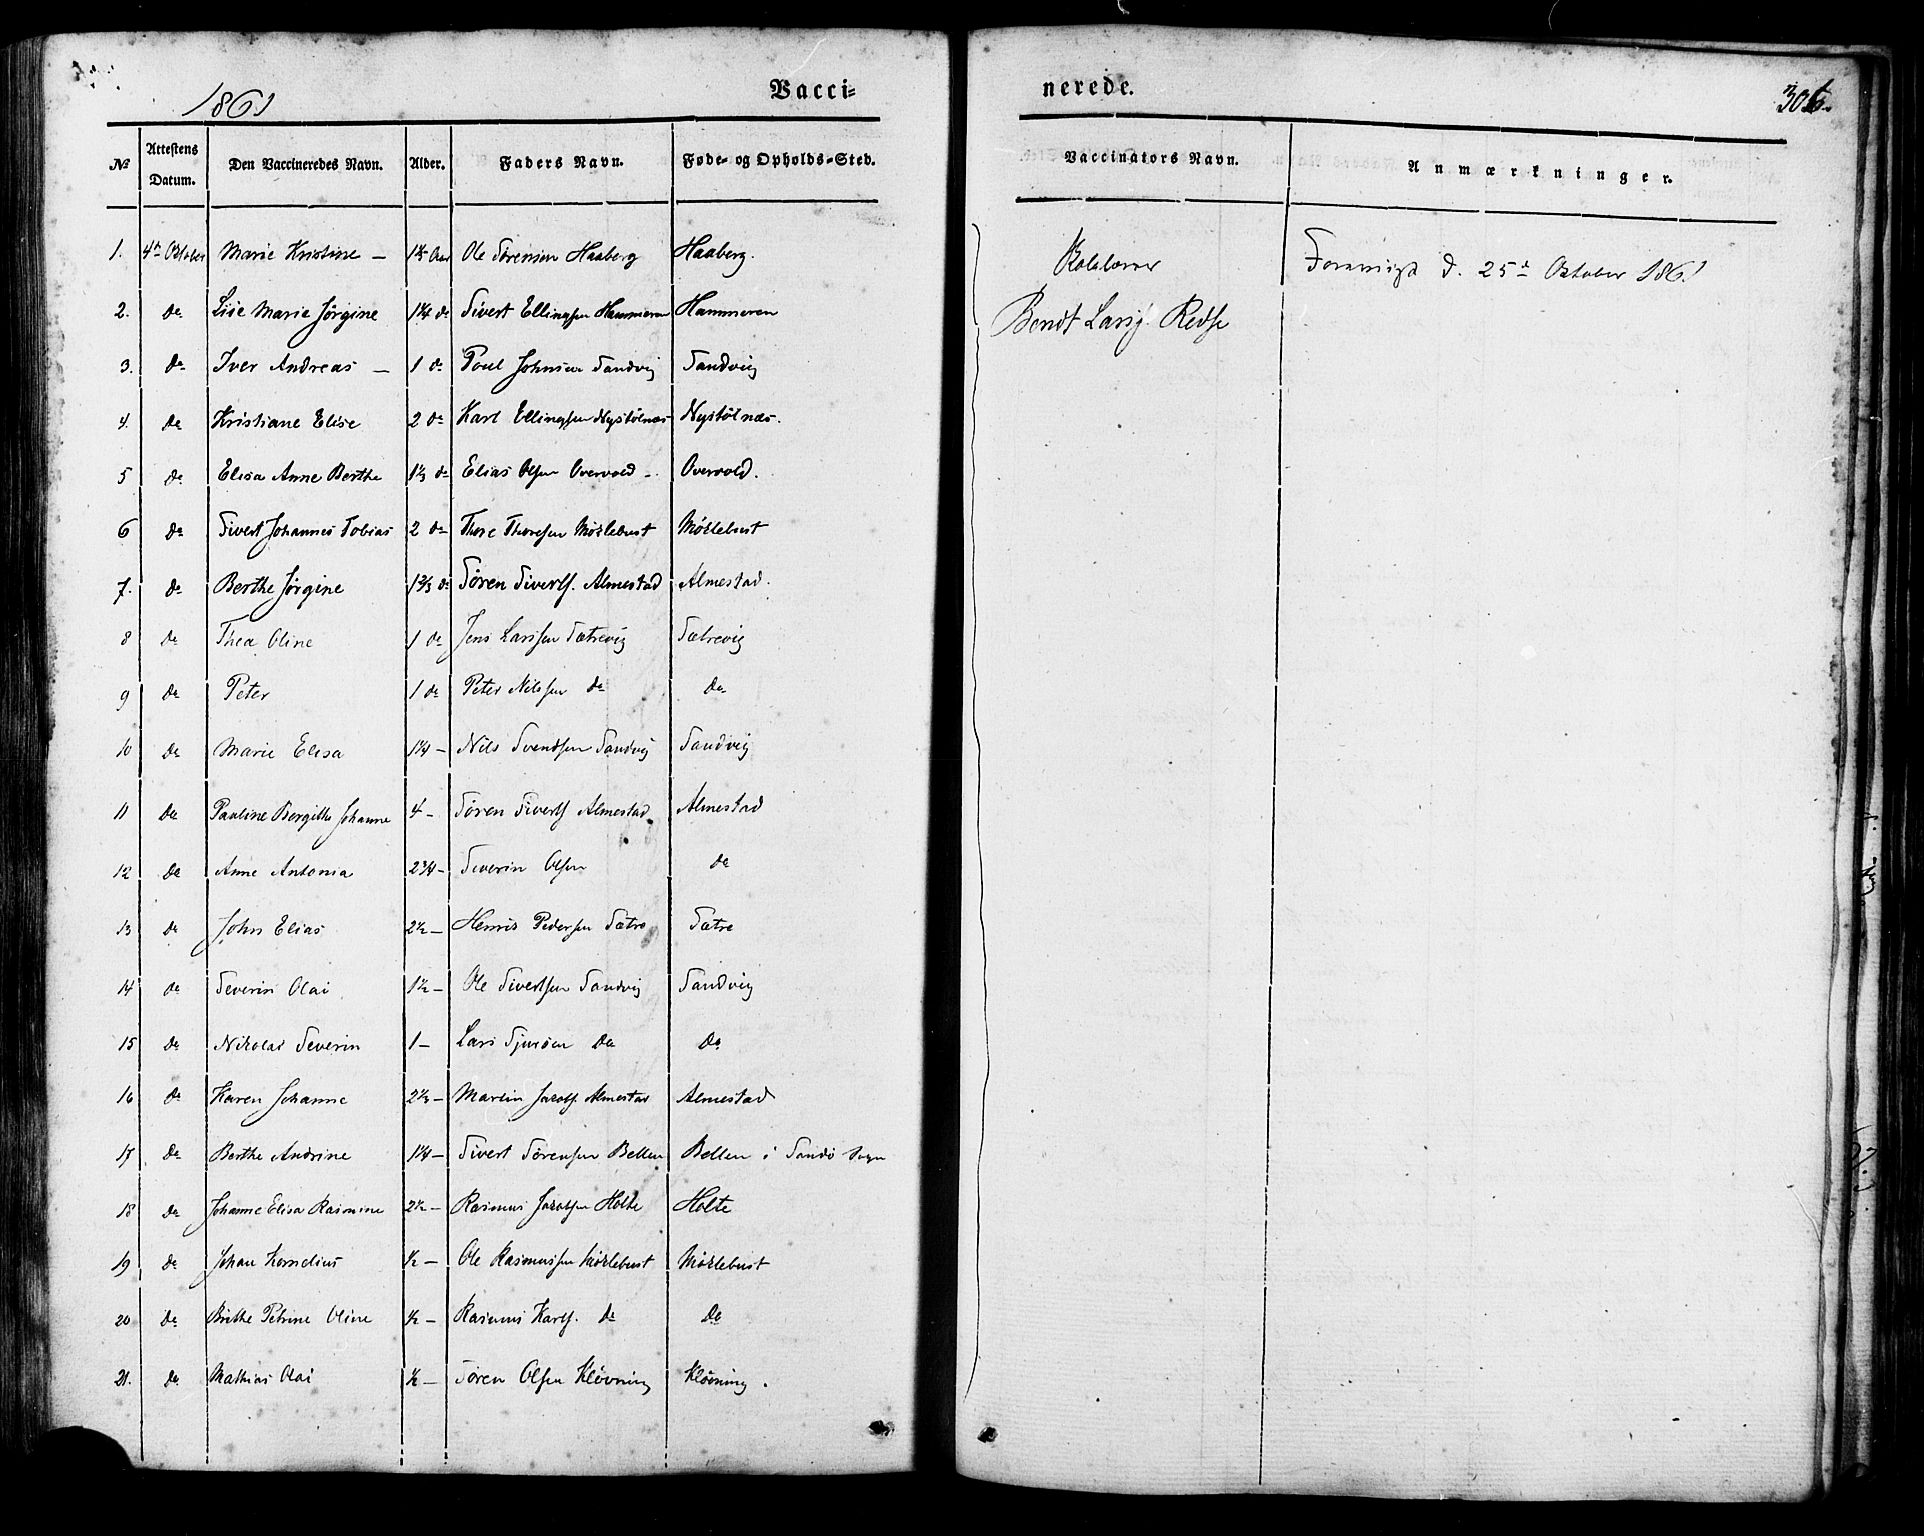 1861
Vacci-
nerede.
№ Attestens Datum. Den Vaccineredes Navn. Alder. Faders Navn. Føde- og Opholds-Sted. Vaccinators Navn. Anmærkninger.
1. 4de Oktober Marie Kristine — Aar Ole Sørensen Haaberg Haaberg.
2. do Lise Marie Jørgine 1¼ do Sivert Ellingsen Hammeren Hammeren
3. do Iver Andreas — 1 do Poul Johnsen Sandvig Sandvig
4. do Kristiane Elise 2 do Karl Ellingsen Nystølnæs Nystølnæs.
5 do Elisa Anne Berthe 1⅓ do Elias Olsen Overvold - Overvold.
6 do Sivert Johannes Tobias 2 do Thore Thoresen Møklebust Møklebust
7. do Berthe Jørgine 1⅔ do Søren Siverts. Almestad Almestad.
8 do Thea Oline 1 do Jens Larssen Sætrevig Sætrevig
9 do Peter 1 do Peter Nilssen do do
10 do Marie Elisa 1¼ - Nils Svendsen Sandvig Sandvig
11 do Pauline Bergithe Johanne 4 - Søren Siverts Almestad. Almestad
12 do Anne Antonia 2¾ - Severin Olsen do
13 do John Elias 2½ - Henrik Pedersen Sætre Sætre
14 do Severin Olai 1½ - Ole Sivertsen Sandvig Sandvig
15 do Nikolai Severin 1 - Lars do do
16 do Karen Johanne 2⅓ - Martin Jacobs. Almestad Almestad
17 do Berthe Andrine 1¼ - Sivert Sørensen Belten Belten i Sandø Sogn
18 do Johanne Elisa Rasmine 2½ - Rasmus Jacobsen Holte Holte
19 do Johan Kornelius ½ - Ole Rasmussen Møklebust Møklebust
20 do Brithe Petrine Oline ½ - Rasmus Karls. do do
21. do Mathias Olai ½ - Søren Olsen Kløvning Kløvning.
Kolelærer
Bendt Larss. Redse
Foreviist d. 25de Oktober 1861